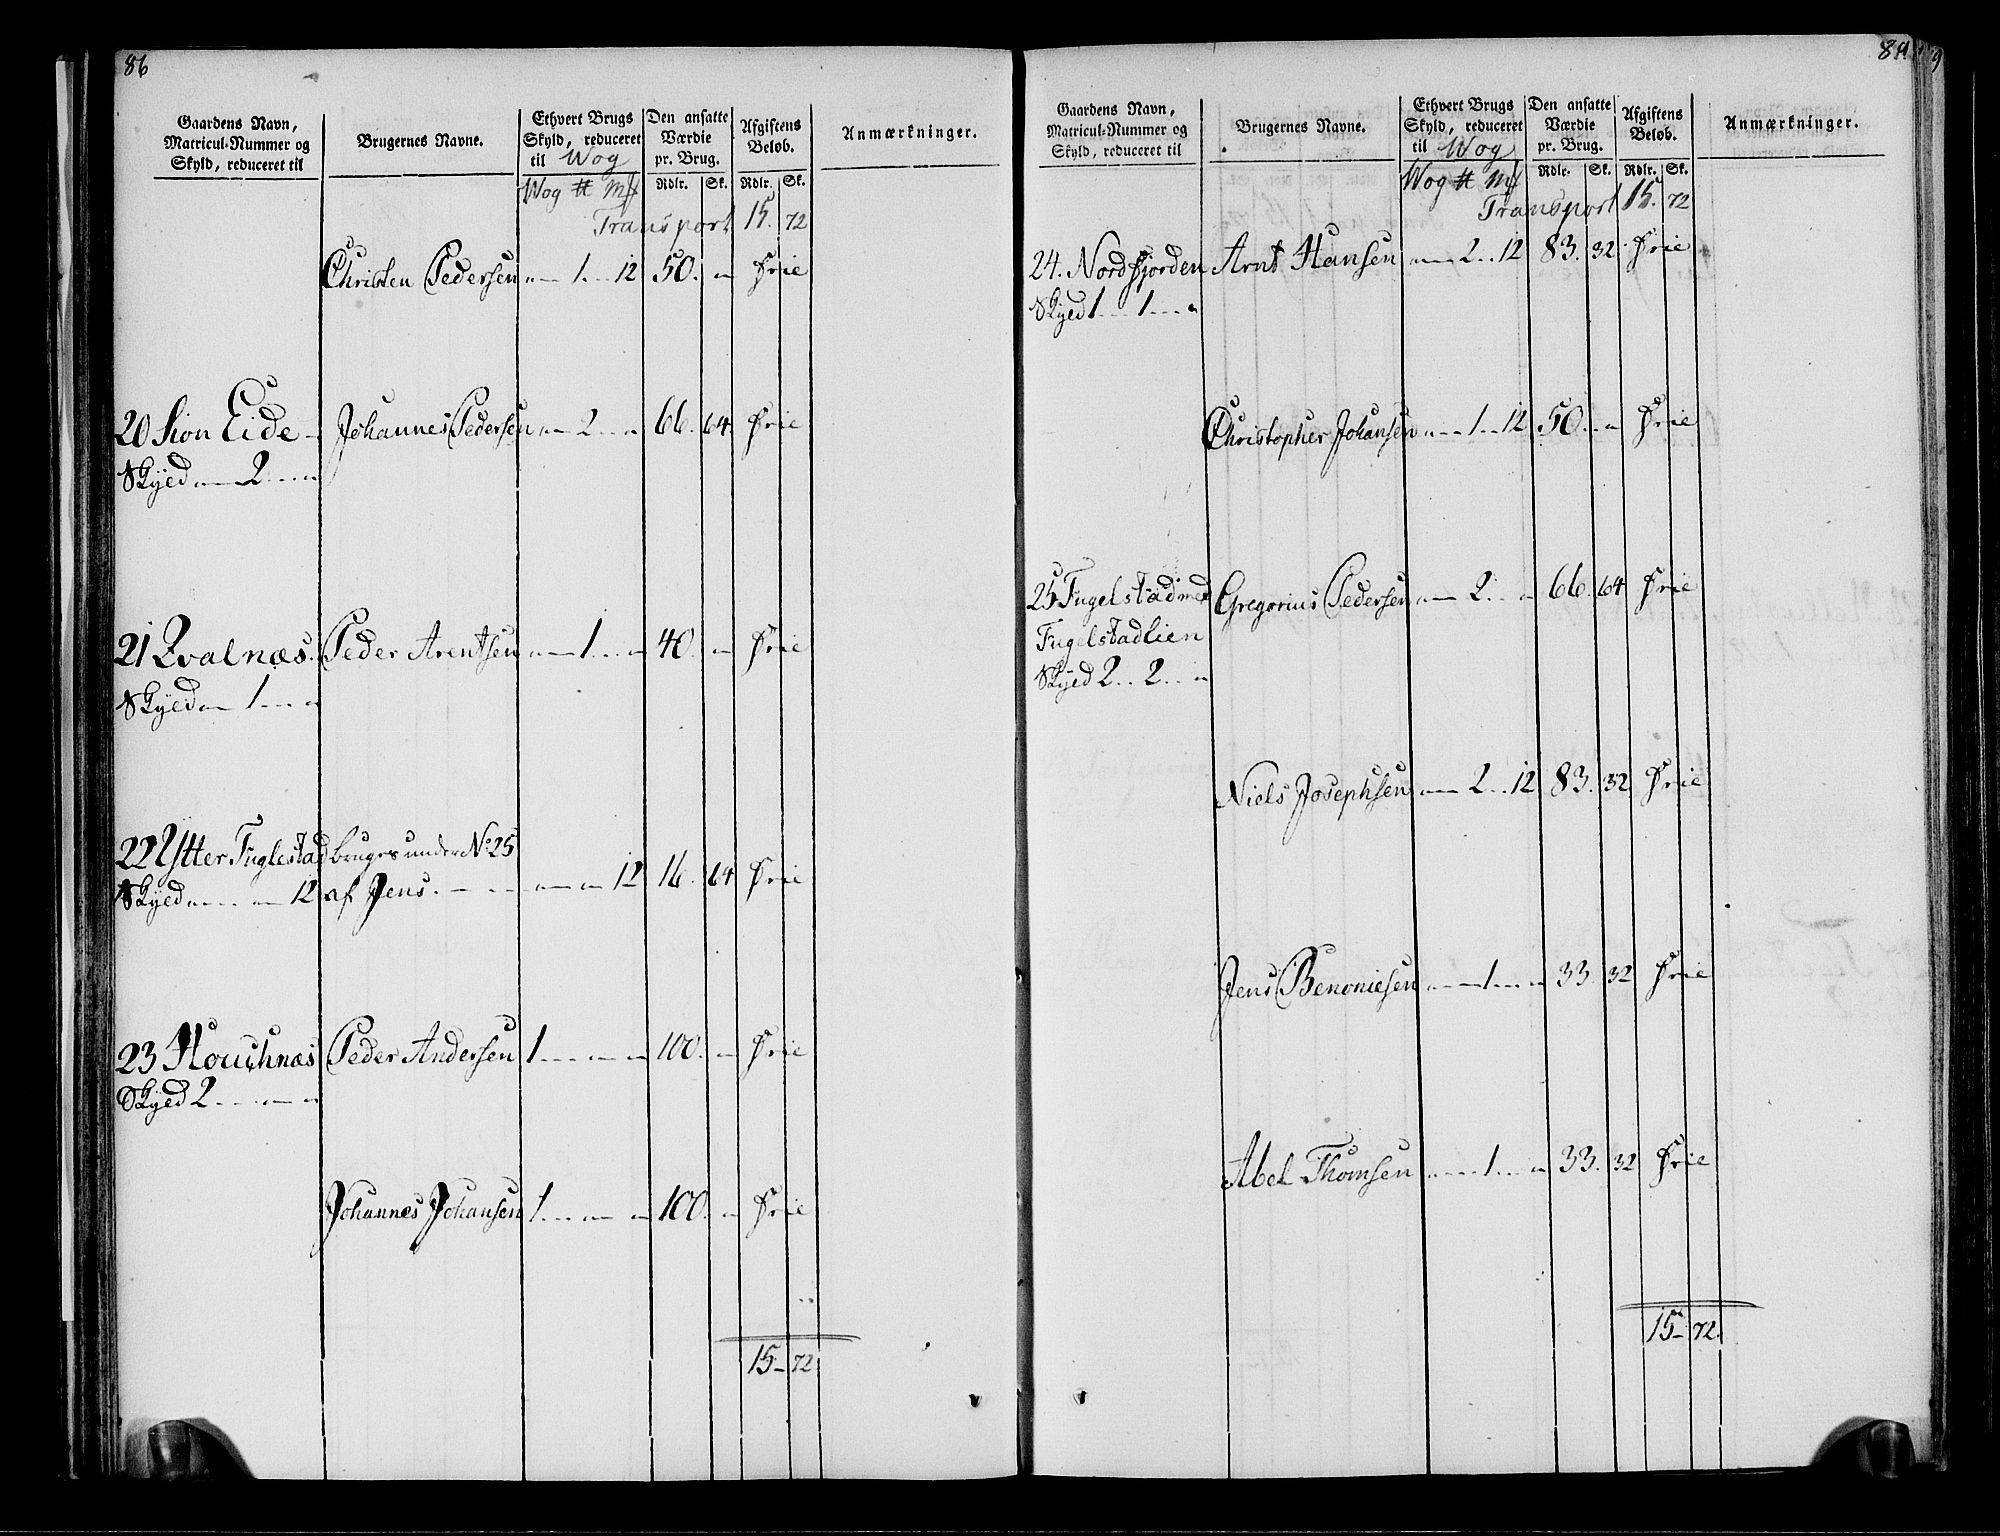 86
Gaardens Navn, Matricul-Nummer og Skyld, reduceret til
Brugernes Navne.
Ethvert Brugs Skyld, reduceret til Wog
Den ansatte Værdie pr. Brug.
Afgiftens Beløb.
Anmærkninger.
Wog ℔ Mk Rdlr. Sk. Rdlr. Sk.
Transport 15. 72
Christen Pedersen " — 1 .. 12 50. " Frie
20 Sion Eide - Johannes Pedersen " — 2 .. " 66. 64. Frie
Skyed " — 2 ... "
21 Qvalnæs. Peder Arentsen " — 1 ... " 40. " Frie
Skyed " — 1 ... "
22 Ytter Fuglestad bruges under No 25
Skyed " ... " 12 af Jens. — " — " 12 16. 64 Frie
23 Houchnæs Peder Andersen 1 ... " — " 100. " Frie
Skyed 2 ... " — "
Johannes Johansen 1 ... " — " 100. " Frie
15 - 72
Gaardens Navn, Matricul-Nummer og Skyld, reduceret til
Brugernes Navne.
Ethvert Brugs Skyld, reduceret til Wog
Den ansatte Værdie pr. Brug.
Afgiftens Beløb.
Anmærkninger.
Wog ℔ Mk Rdlr. Sk. Rdlr. Sk.
Transport 15. 72
24. Nordfjorden Arnt Hansen " — 2 .. 12 83. 32 Frie
Skyed 1 ... 1 ... "
Christopher Johansen " — 1 .. 12 50. " Frie
25 Fugelstad med Gregorius Pedersen " — 2 .. " 66. 64 Frie
Fugelstadlien
Skyed 2 .. 2 .. "
Niels Josephsen " — 2 .. 12 83. 32 Frie
Jens Benoniesen " — 1 ... " 33. 32 Frie
Abel Thomsen " — 1 ... " 33. 32 Frie
15 - 72.